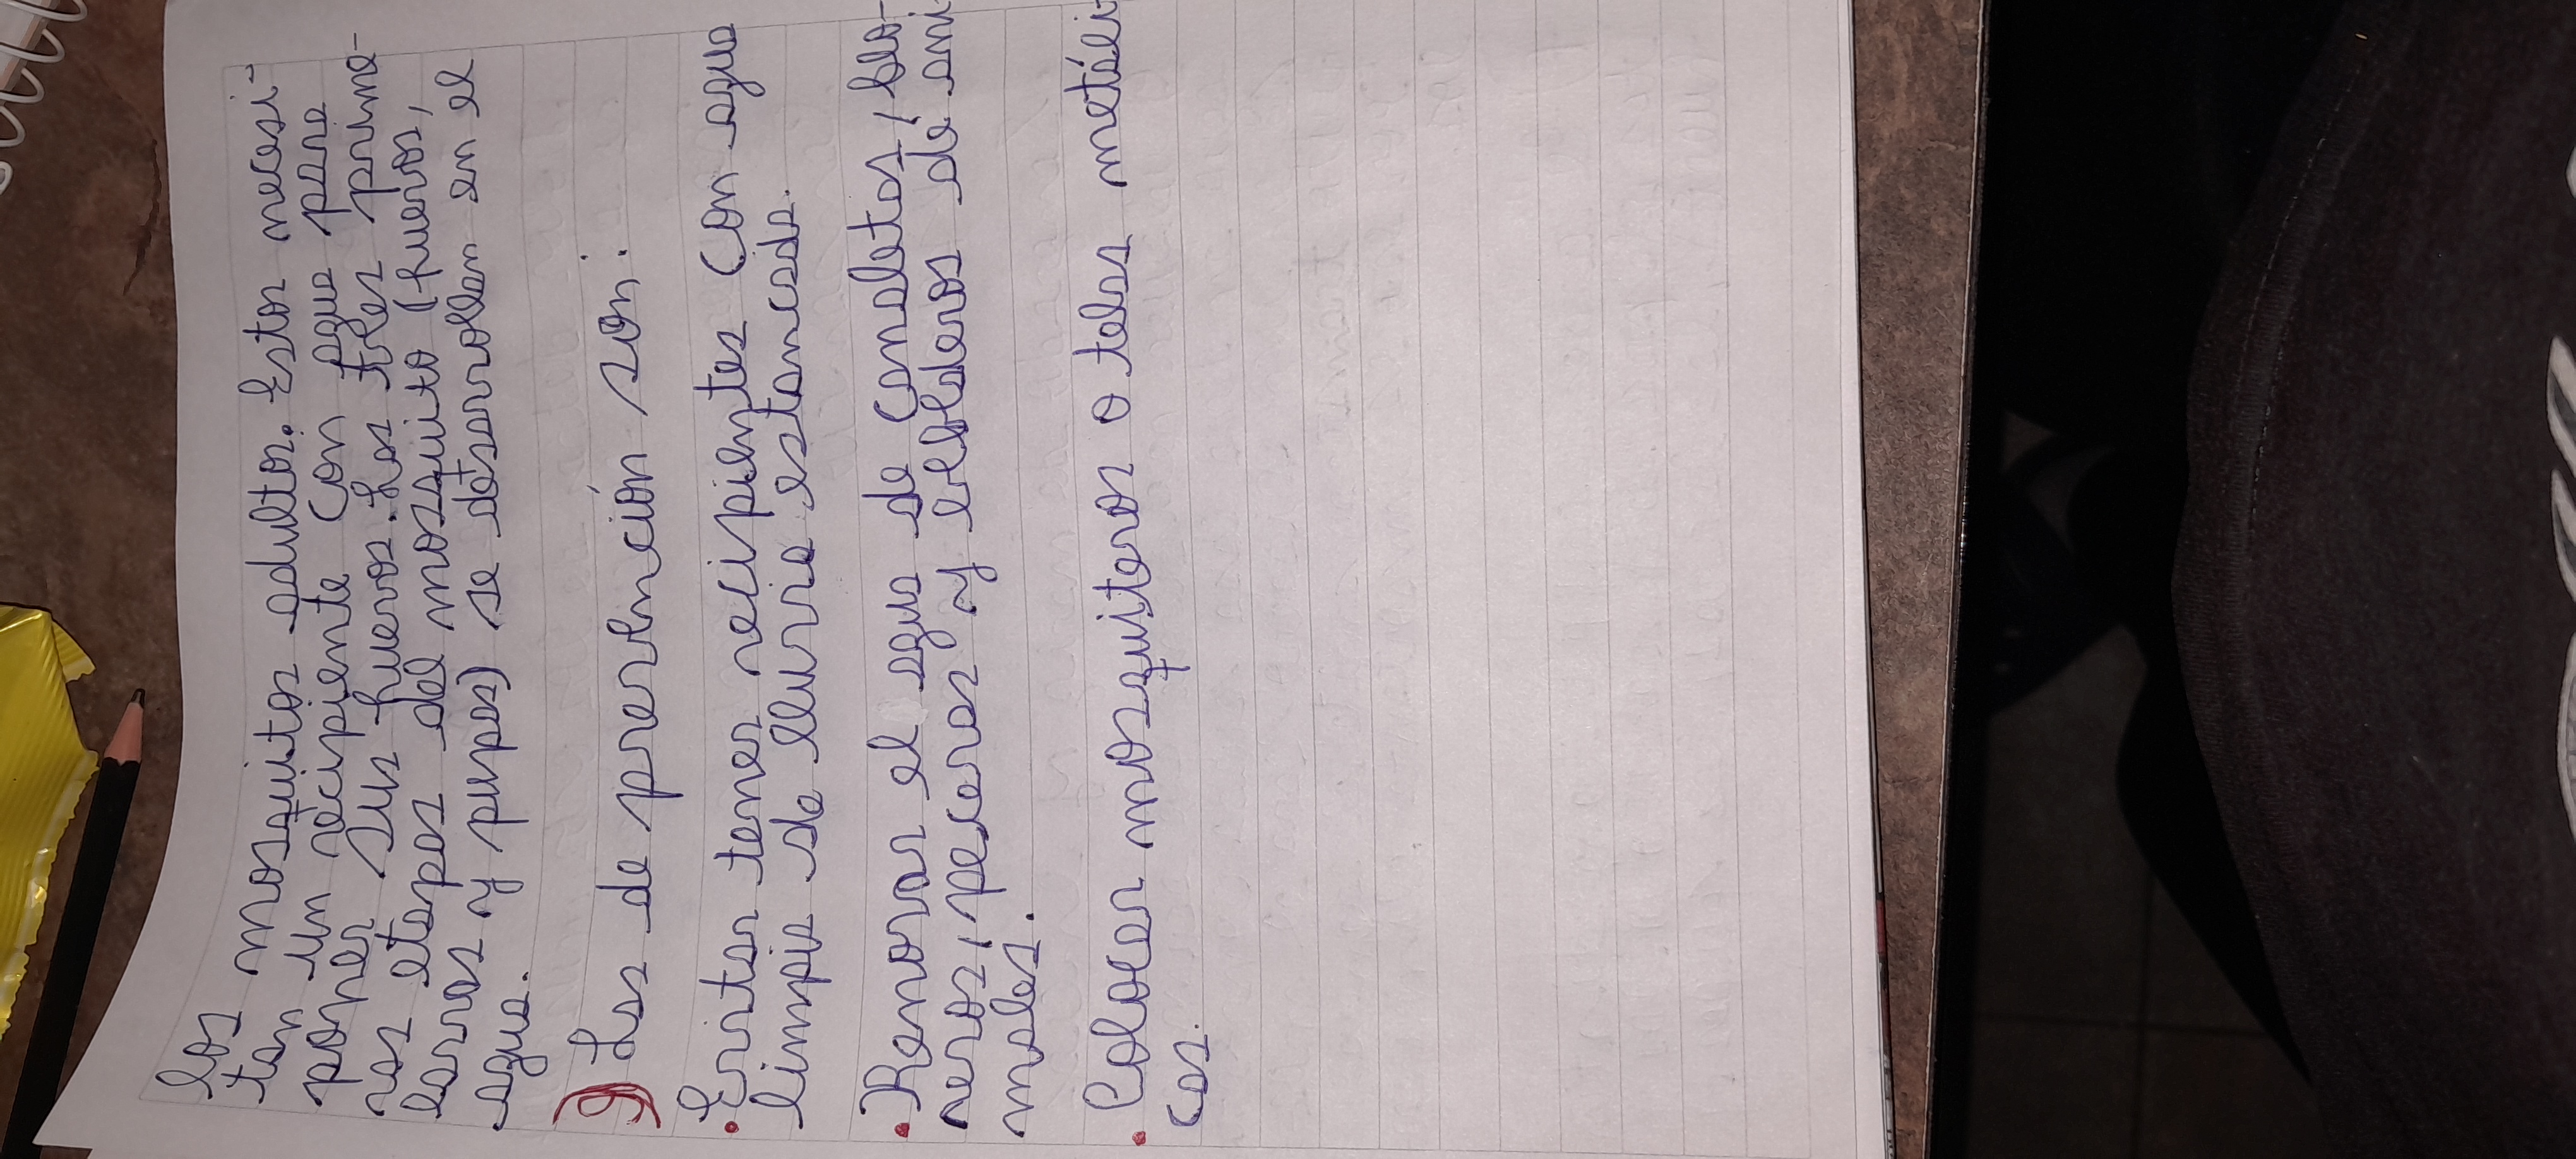 los mosquitos adultos. Estos necesi-
tan un recipiente con agua para
poner sus huevos. Las tres prime-
ras etapas del mosquito (huevos,
larvas y pupas) se desarrollan en el
agua.
g) Las de prevención son:
• Evitar tener recipientes con agua
limpia de lluvia estancada.
• Renovar el agua de canaletas, flo-
reros, peceras y bebederos de ani
males.
• Colocar mosquiteros o telas metáli
cas.